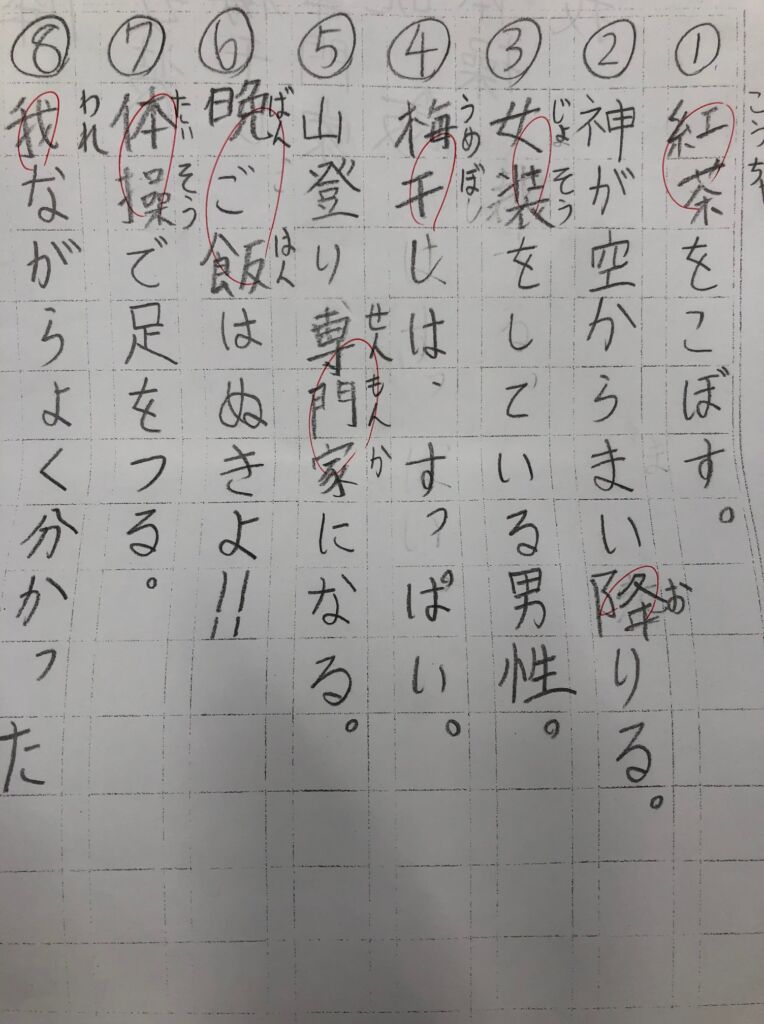 ① 紅茶をこぼす。
こうちゃ
② 神が空からまい降りる。
お
③ 女装をしている男性。
じょそう
④ 梅干しは、すっぱい。
うめぼ
⑤ 山登り専門家になる。
せんもんか
⑥ 晩ご飯はぬきよ!!
ばん
はん
⑦ 体操で足をつる。
たいそう
⑧ 我ながらよく分かった
われ